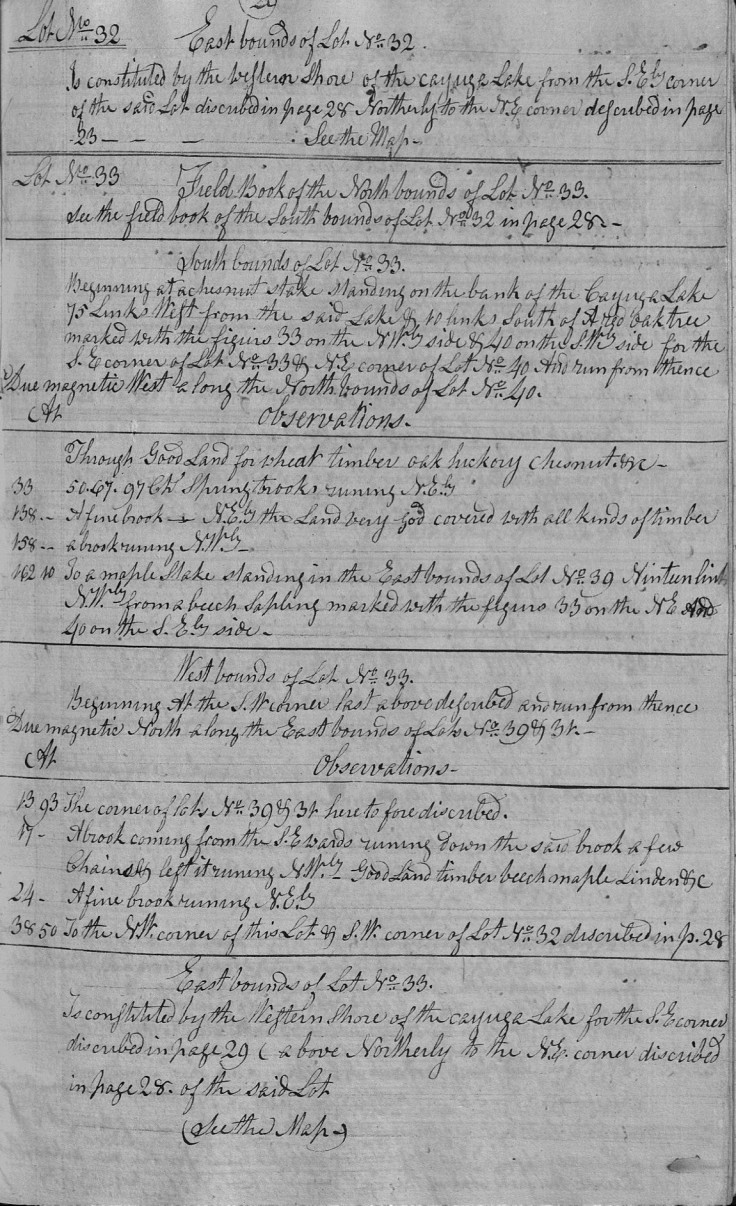 (29)
Lot No. 32 East bounds of Lot No. 32.
Is constituted by the western Shore of the cayuga Lake from the S. Ely corner
of the said Lot discribed in page 28 Northerly to the N.E corner described in page
23 — — — — See the Map —
Lot No. 33 Field Book of the North bounds of Lot No. 33.
See the field book of the South bounds of Lot No. 32 in page 28 —
South bounds of Lot No. 33.
Beginning at a chesnut stake standing on the bank of the Cayuga Lake
75 Links West from the said Lake & 10 links South of A red oak tree
marked with the figurs 33 on the N.Wly side & 40 on the S.Wly side for the
S.E corner of Lot No. 33 & N.E corner of Lot No. 40 And run from thence
Due magnetic West along the North bounds of Lot No. 40.
At Observations.
Through Good Land for wheat timber oak hickory chesnut &c —
33 50. 67. 97 Chs Spring brooks runing N.Ely
138 - - A fine brook — N.Ely the Land very good covered with all kinds of timber
158 - - a brook runing N.Wly —
162 10 To a maple Stake standing in the East bounds of Lot No. 39 Ninteen link
N.Wly from a beech Sapling marked with the figurs 33 on the N.E And
40 on the S. Ely side —
West bounds of Lot No. 33.
Beginning At the S.W corner last above described and run from thence
Due magnetic North along the East bounds of Lots No. 39 & 31. —
At Observations —
13 93 The corner of lots No. 39 & 31 here to fore discribed.
17 - A brook coming from the S.E wards runing down the said brook a few
Chains & left it runing N.Wly Good Land timber beech maple Linden &c
24 - A fine brook runing N.Ely
38 50 To the N.W. corner of this Lot & S.W. corner of Lot No. 32 discribed in p. 28
East bounds of Lot No. 33.
Is constituted by the Western Shore of the cayuga Lake for the S.E corner
discribed in page 29 ( above Northerly to the N.E. corner discribed
in page 28. of the said Lot
(See the Map —)